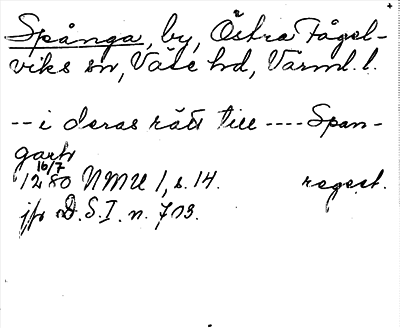 Spånga, by, Östra Fågel-
viks sn, Väse hd, Värml. l.
-- i deras rätt till ---- Span-
garh
16/7
1280 NMU 1, s. 14. regest.
jfr D.S.I. n. 703.